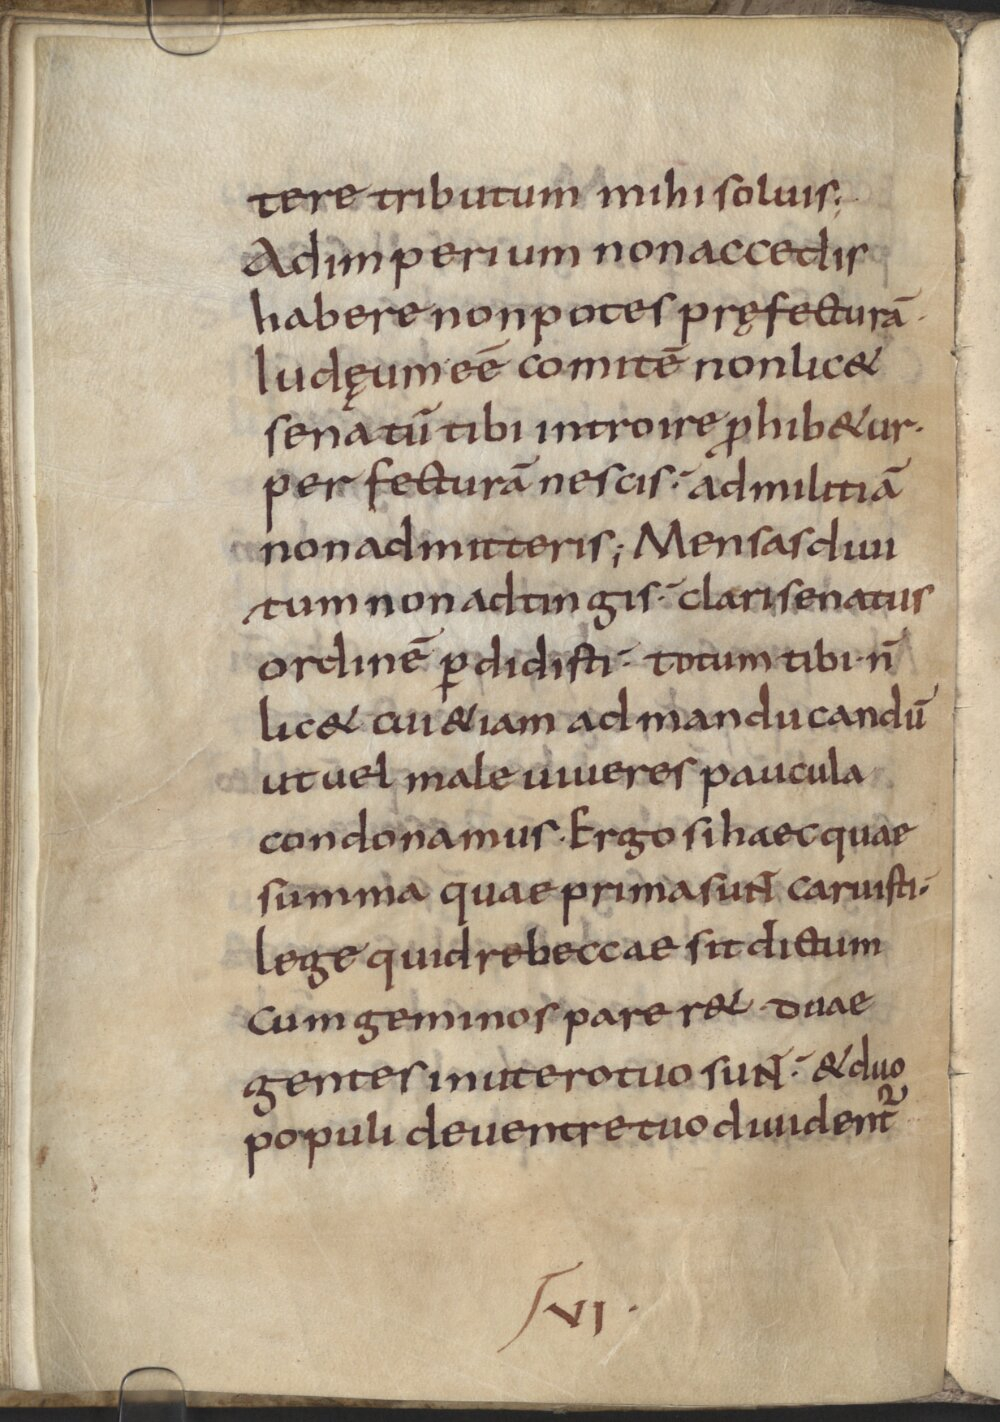 tere tributum mihi soluis;
Ad imperium non accedis
habere non potes pręfecturā·
Iudęum eē comitē non lic&
senatū tibi introire ꝓhib&ur·
perfecturā nescis·̄ ad militiā
non admitteris; Mensas diui
tum non adtingis·̄ clarisenatus
ordinē ꝑdidisti·̄ totum tibi n̄
lic& cui &iam ad manducandū
ut uel male uiueres paucula
condonamus· Ergo si haec quae
summa quae prima sunt caruisti·̄
lege quid rebeccae sit dictum
cum geminos parer& duae
gentes in utero tuo sunt·̄ & duo
populi de uentre tuo diuident᷑
VI·